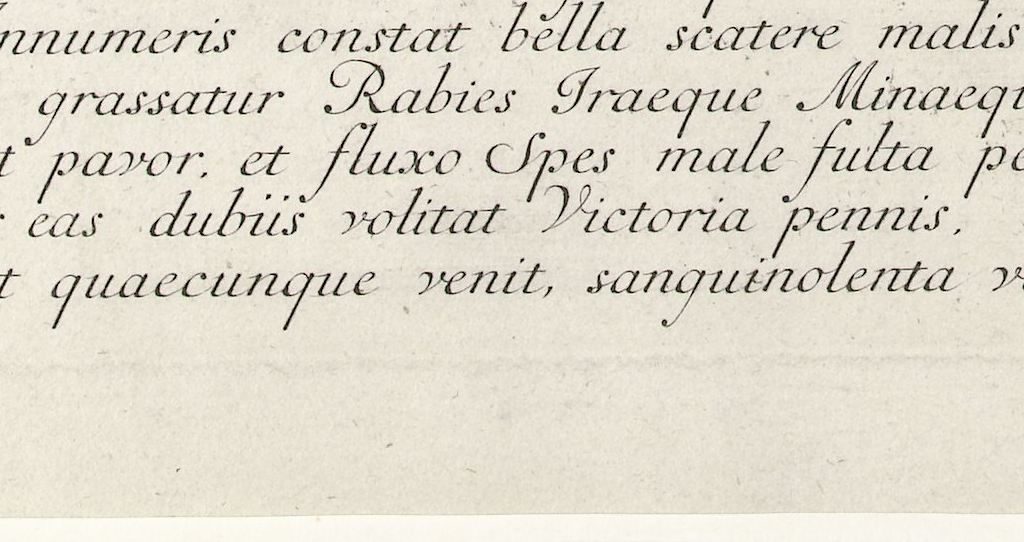 Innumeris constat bella scatere malis
grassatur Rabies Iraeque Minaequ
t pavor, et fluxo Spes male fulta pe
r eas dubiis volitat Victoria pennis,
t quaecunque venit, sanguinolenta v